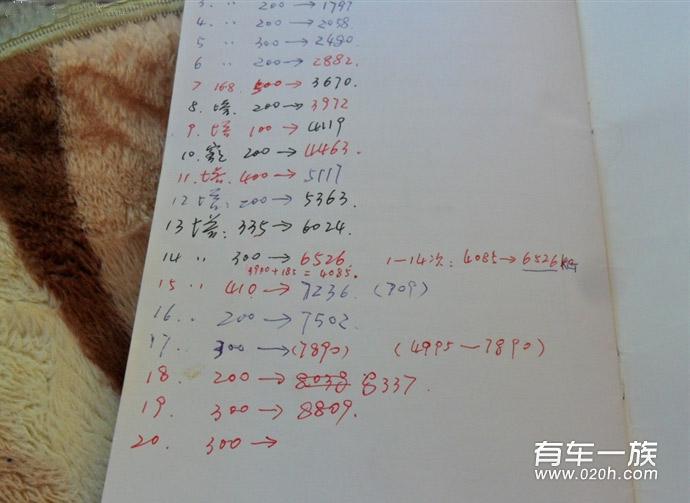 3. 〃 200 → 1797
4. 〃 200 → 2058.
5 〃 300 → 2480.
6 〃 200 → 2882.
7 168. 500 → 3670.
8. 200 → 3972
9. 100 → 4119
10. 200 → 4463.
11. 400 → 5117
12 200 → 5363.
13 335 → 6024.
14 〃 300 → 6526. 1—14次: 4085 → 6526
3900+185 = 4085.
15 〃 410 → 7236 (709)
16 〃 200 → 7502.
17 〃 300 → (7890) (4995 — 7890)
18. 200 → 8038 8337.
19. 300 → 8809.
20. 300 →
有车一族
www.020h.com